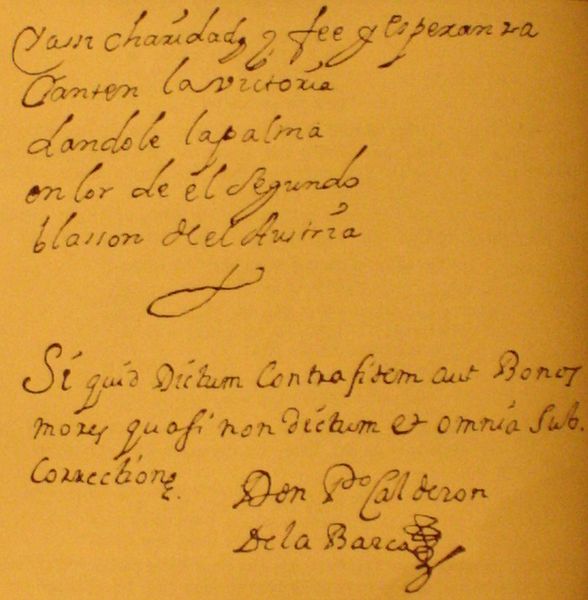 Y assi charidad y fee y esperanza
Canten la victoria
dandole la palma
en lor de el segundo
blasson de el Austria
Si quid Dictum Contra fidem aut Bonos
mores quasi non dictum et omnia Sub.
Correctione.
Don Po Calderon
De la Barca